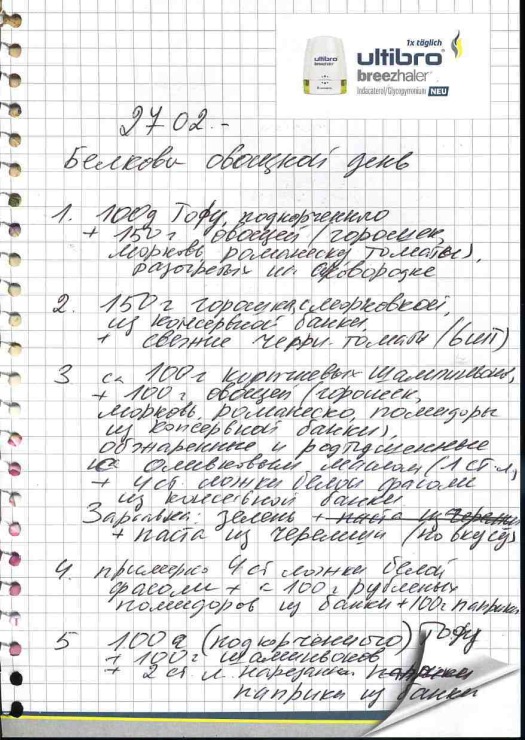 1x täglich
ultibro®
breezhaler®
Indacaterol/Glycopyrronium NEU
ultibro®
breezhaler®
27 02.-
Белкови овощной день
1. 100g Тофу, подкопченного
+ 150 г овощей (горошек,
морковь, романеско, томаты),
разогретых на сковородке
2. 150 г горошка с морковкой,
из консервной банки
+ свежие черри томаты (6 шт)
3 ca 100 г коричневых шампиньонов,
+ 100 г овощей (горошек,
морковь, романеско, помидоры
из консервной банки),
обжаренные и
с оливковым маслом (1 ст.л)
+ 4 ст ложки белой фасоли
из консервной банки
Заправка: зелень + паста из черемши
+ паста из черемши (по вкусу)
4. примерно 4 ст ложки белой
фасоли + с 100 г рубленых
помидоров из банки + 100г паприки
5 100 g (подкопченного) Тофу
+ 100 г шампиньонов
+ 2 ст л. нарезанной паприки
паприки из банки